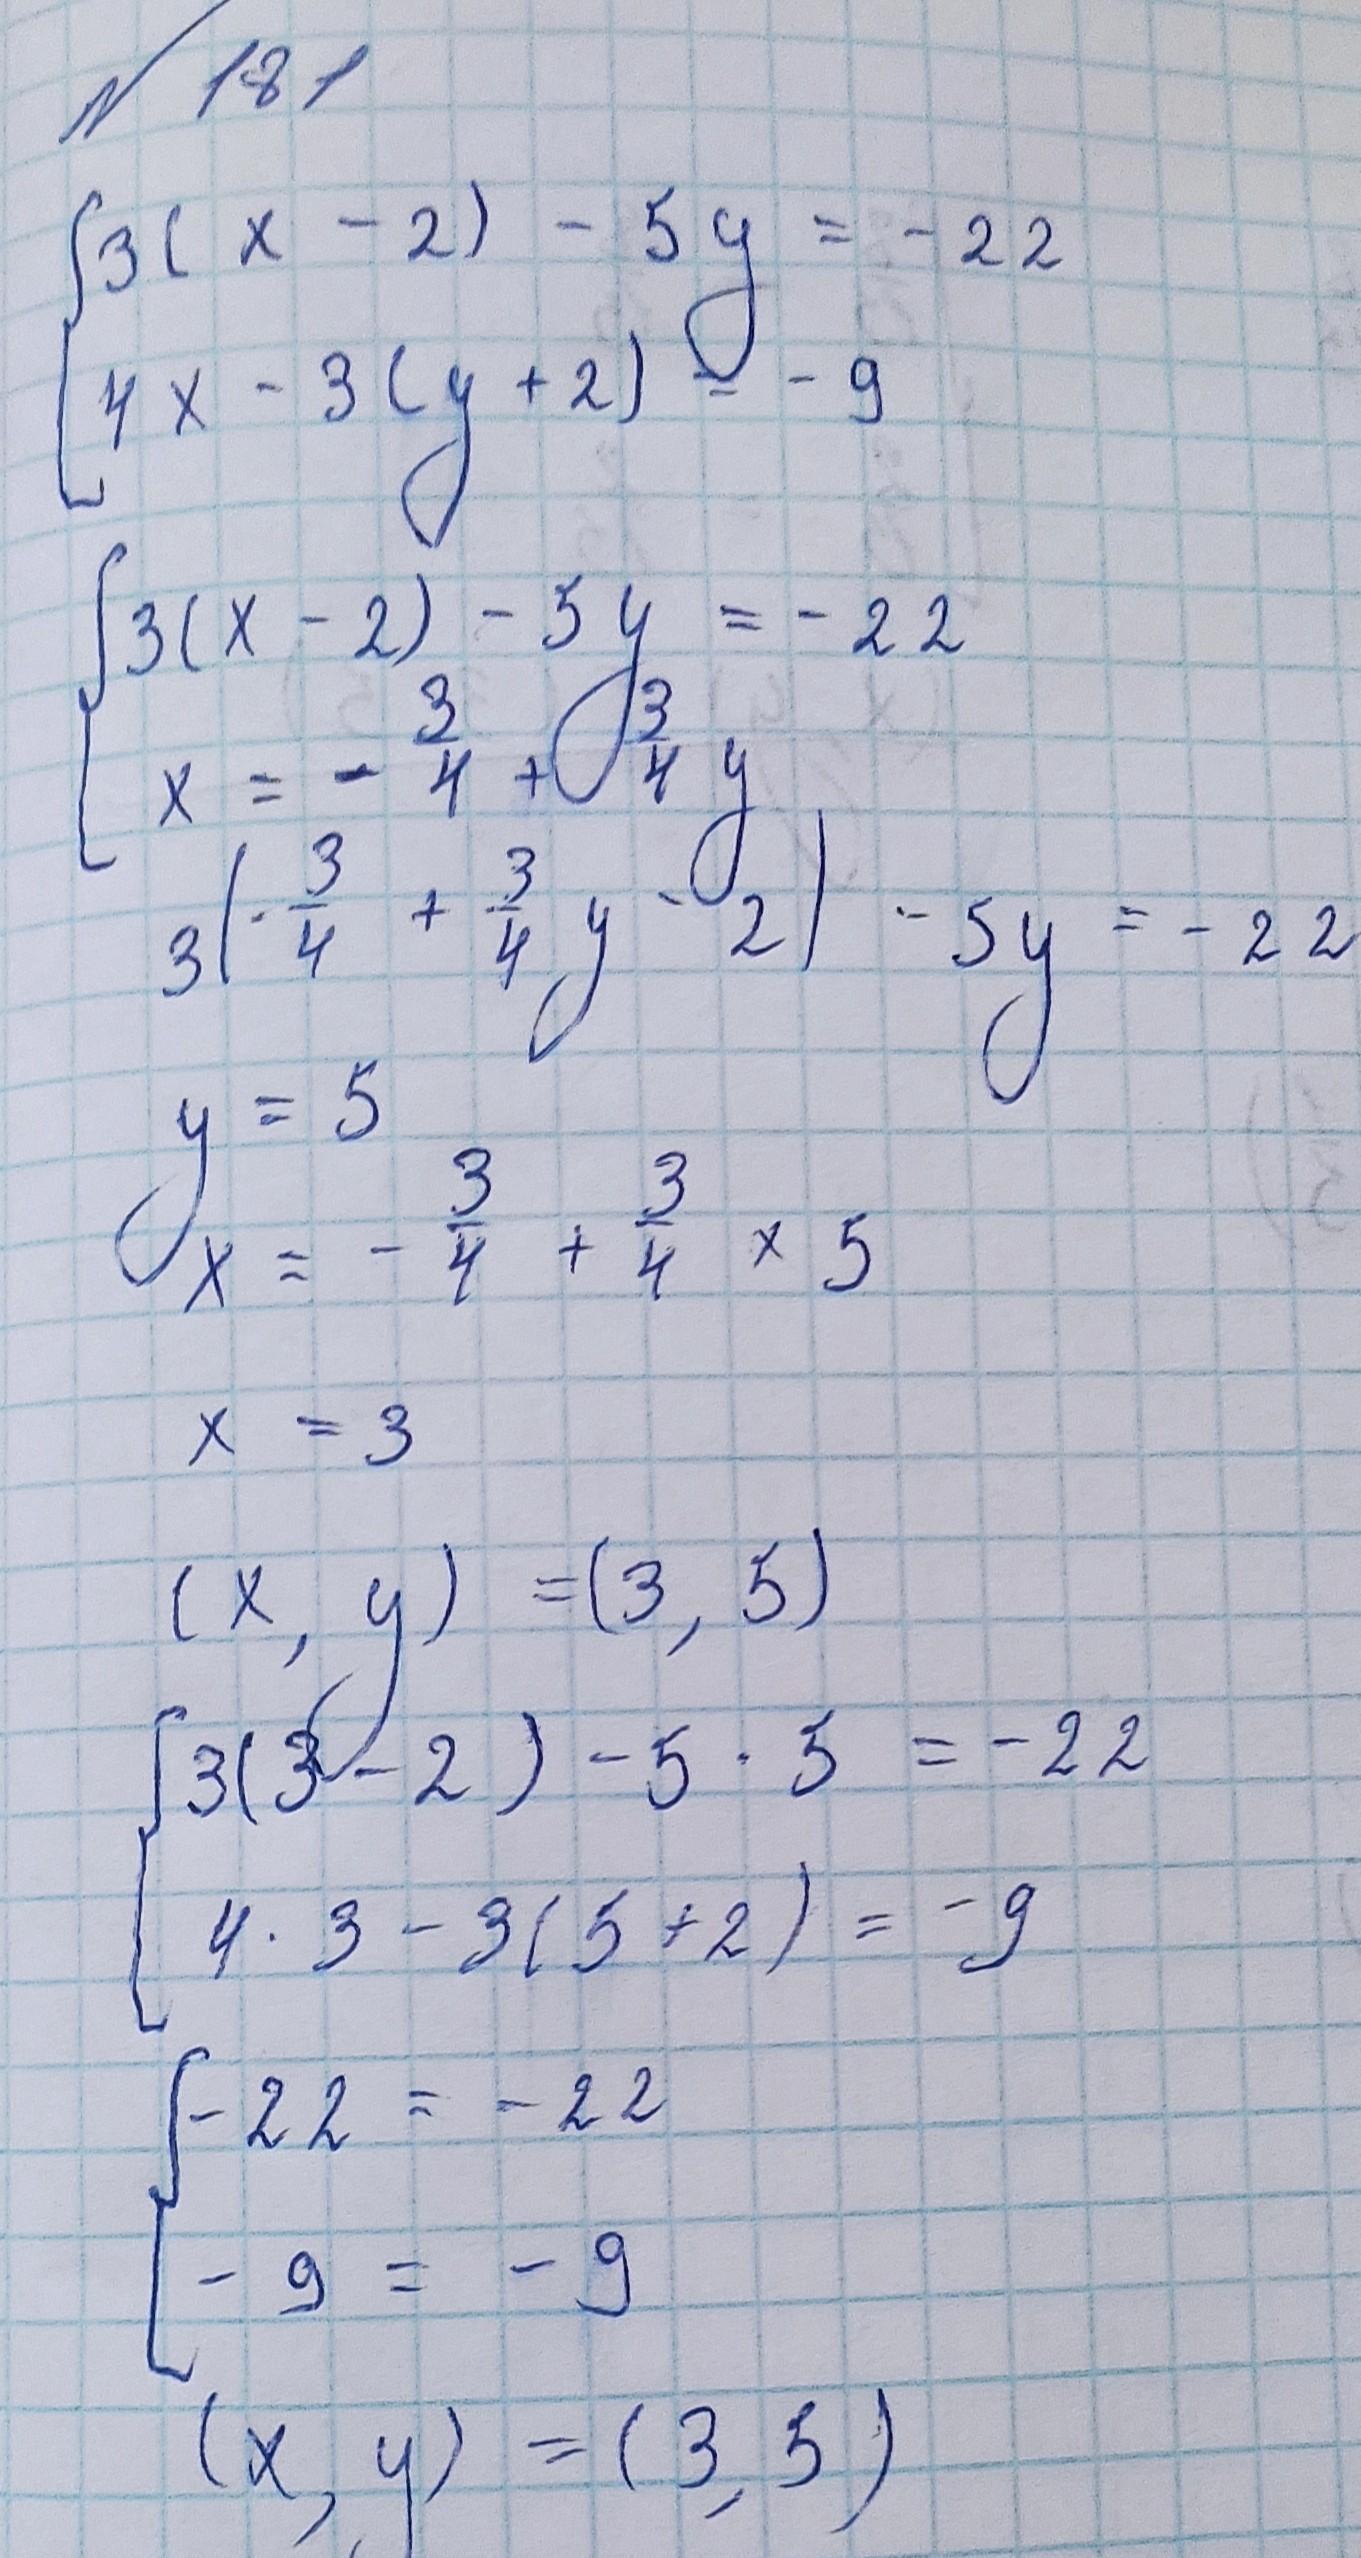 № 181
{ 3(x - 2) - 5y = -22
4x - 3(y + 2) = -9
{ 3(x - 2) - 5y = -22
x = - 3/4 + 3/4 y
3(- 3/4 + 3/4 y - 2) - 5y = -22
y = 5
x = - 3/4 + 3/4 × 5
x = 3
(x, y) = (3, 5)
{ 3(3 - 2) - 5 · 5 = -22
4 · 3 - 3(5 + 2) = -9
{ -22 = -22
-9 = -9
(x, y) = (3, 5)